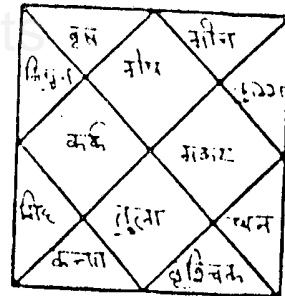 वृष मीन
मिथुन मेष कुम्भ
कर्क मकर
सिंह तुला धन
कन्या वृश्चिक